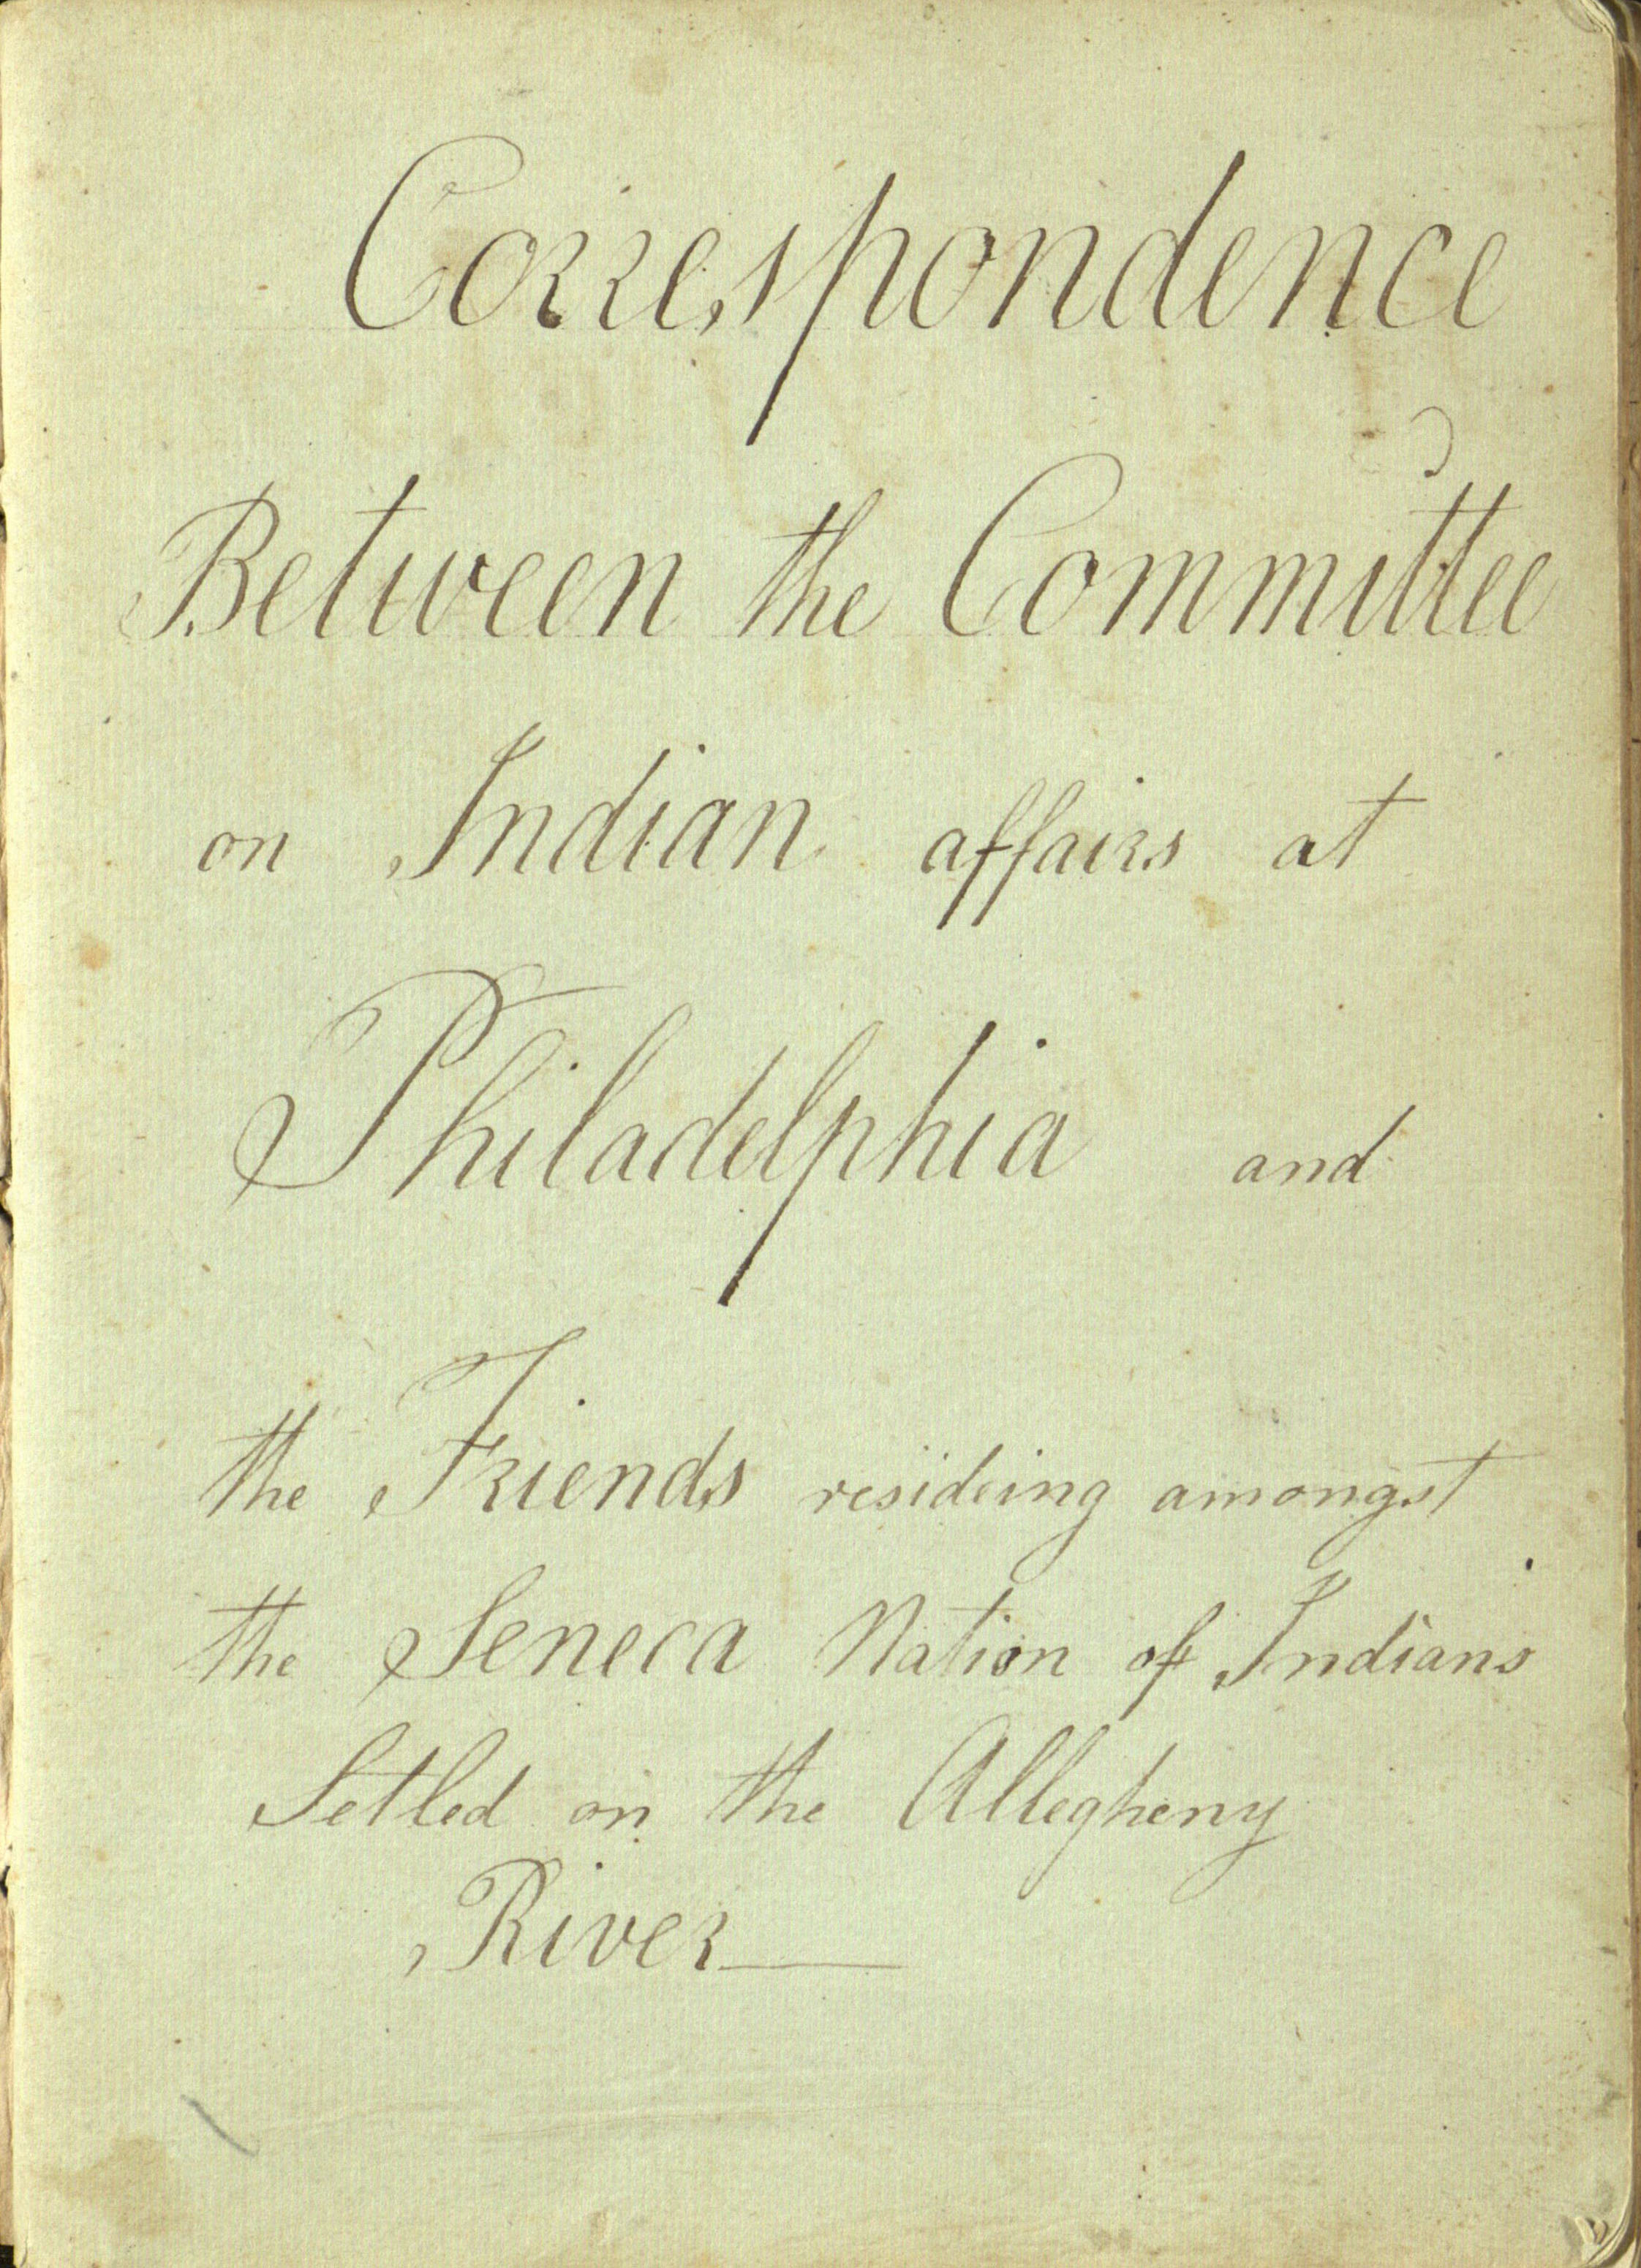 Correspondence
Between the Committee
on Indian affairs at
Philadelphia and
the Friends resideing amongst
the Seneca Nation of Indians
Setled on the Allegheny
River